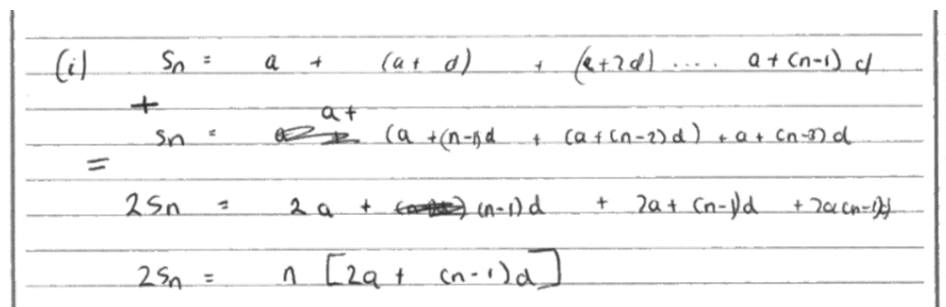 (i) Sn = a + (a + d) + (a+2d) .... a + (n-1) d
+
a +
Sn = (a + (n-1)d + (a + (n-2) d) + a + (n-3) d
=
2Sn = 2a + (n-1) d + 2a + (n-1)d + 2a(n-1)d
2Sn = n [2a + (n-1)d]